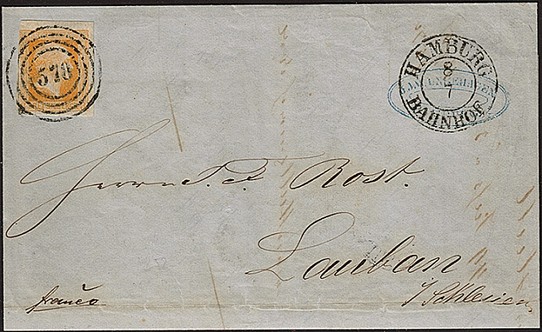 570
HAMBURG
8
7
BAHNHOF
Herrn T. F. Rost.
Lauban
franco
i/Schlesien